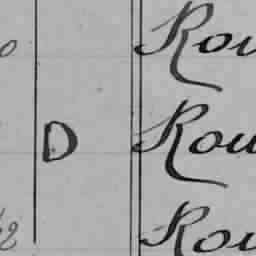 Rou
D Rou
Rou